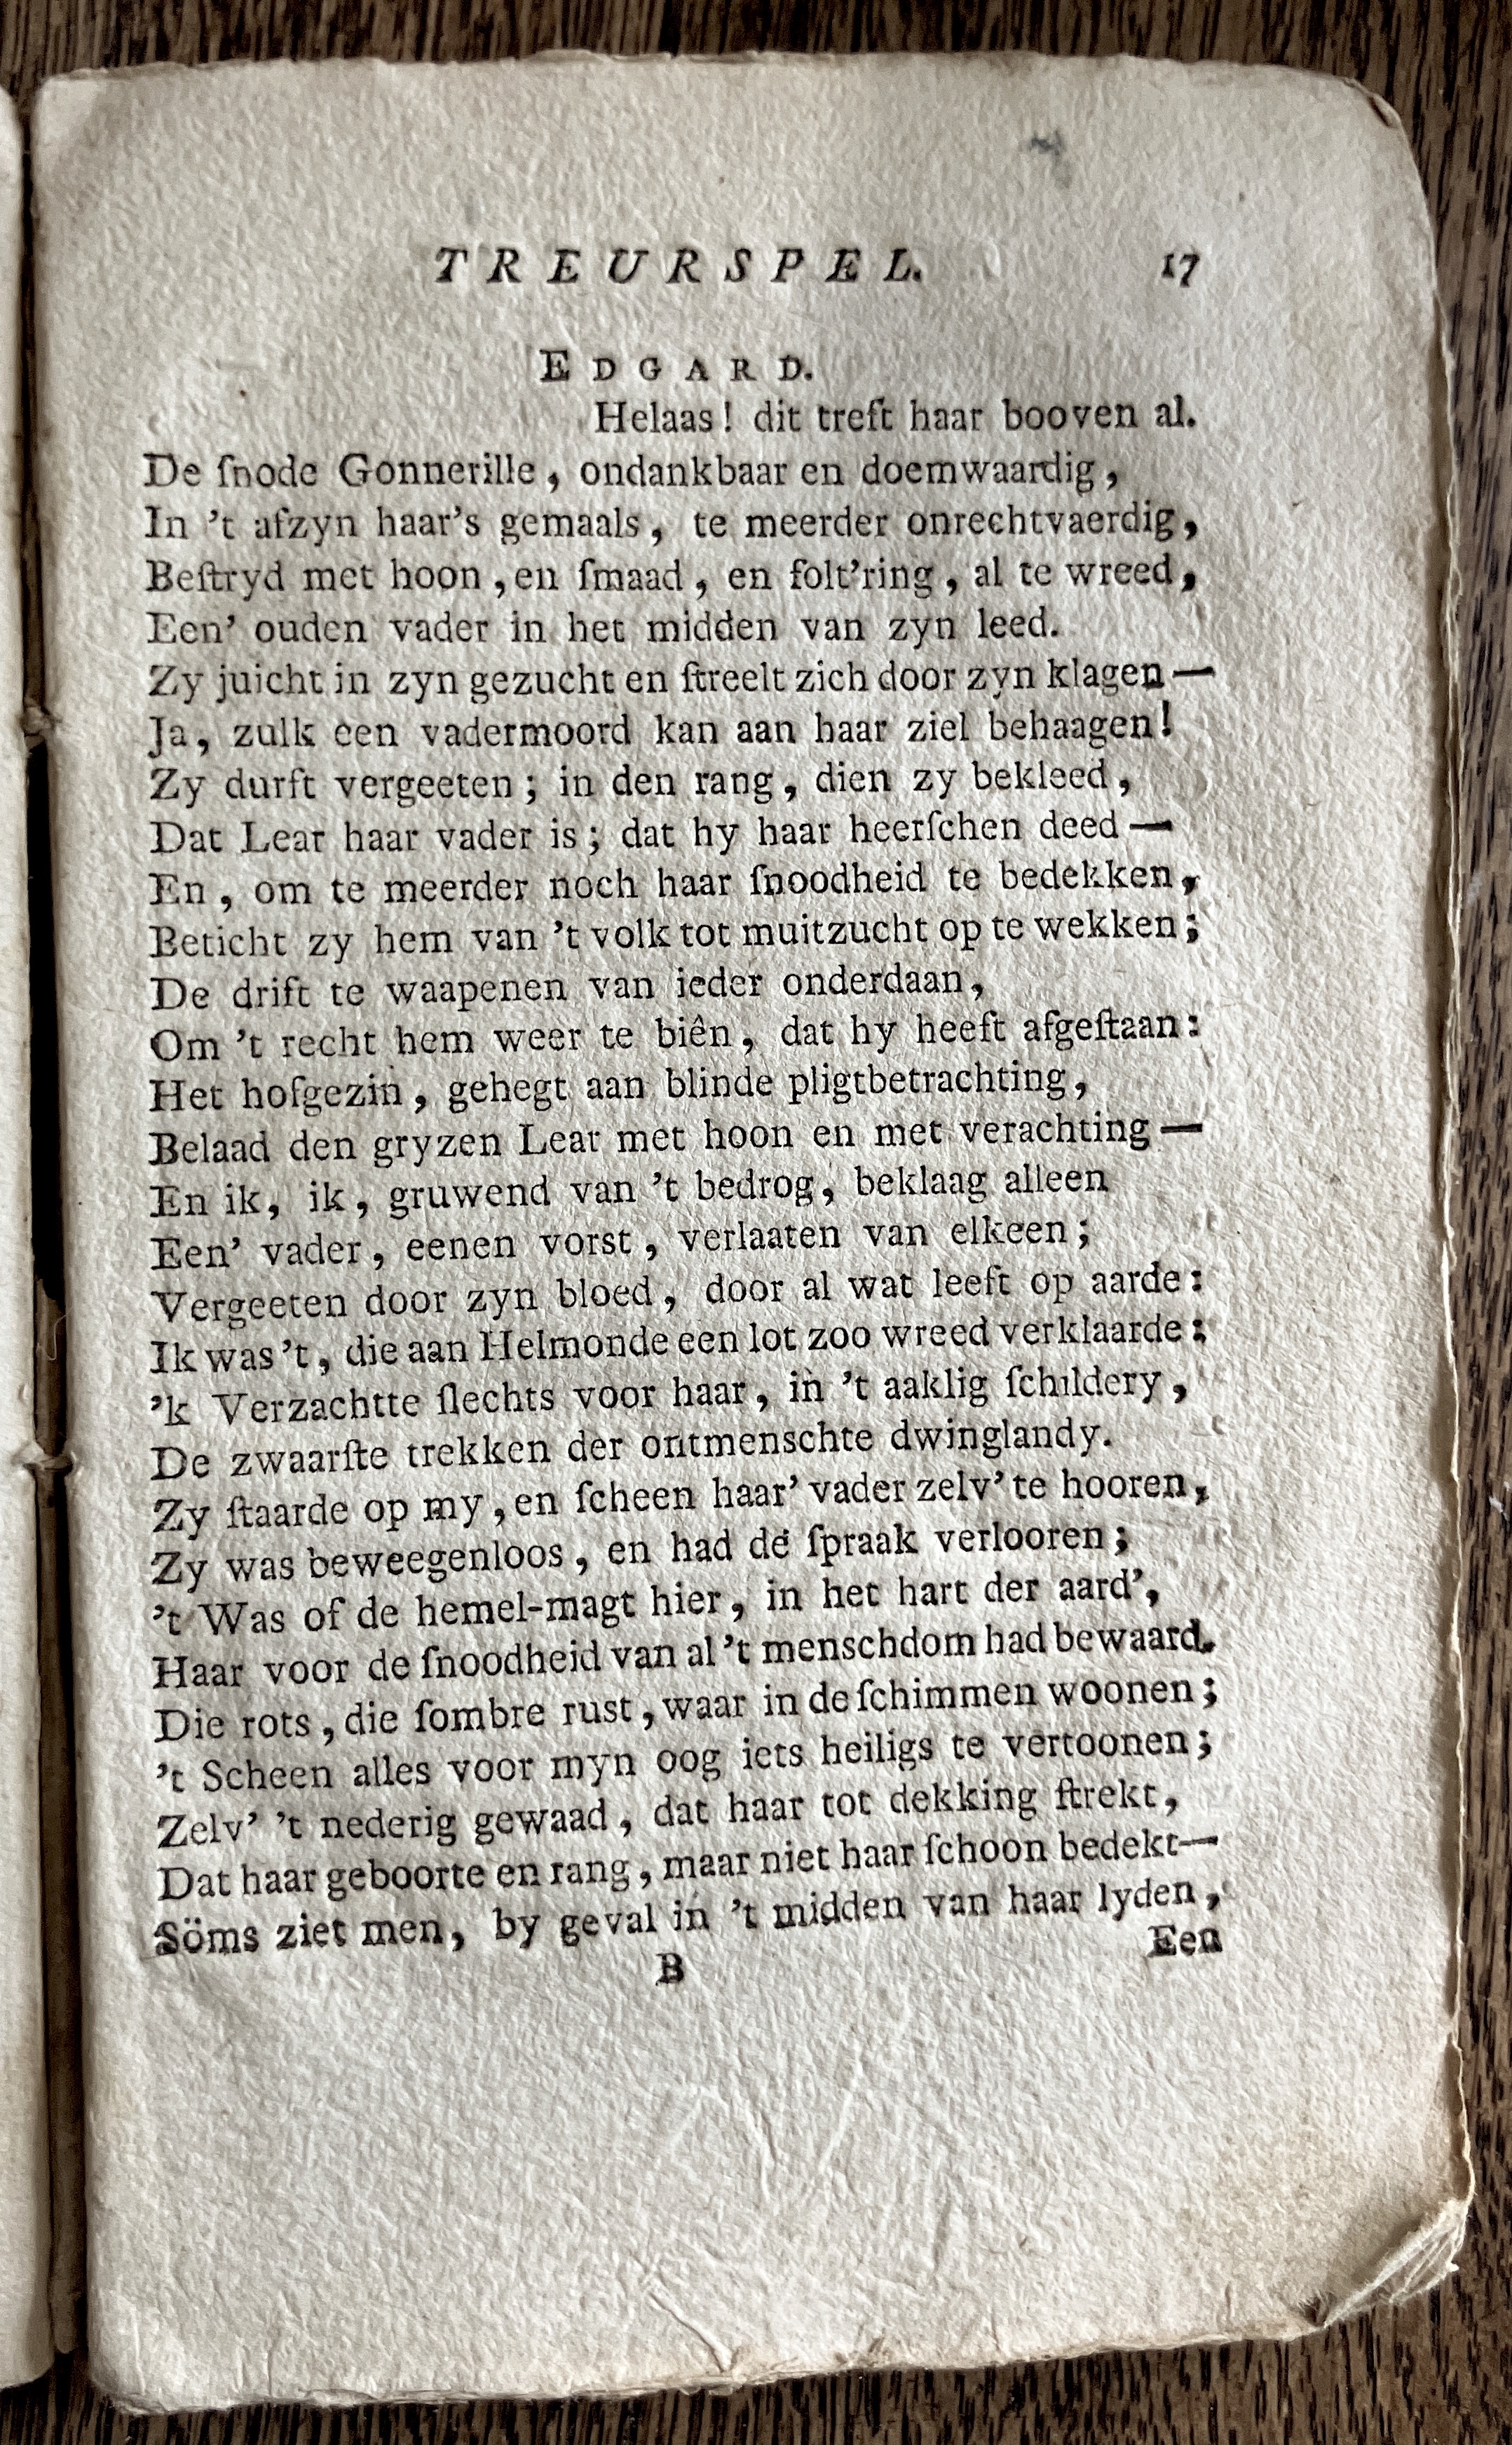 TREURSPEL. 17
EDGARD.
Helaas! dit treft haar booven al.
De ſnode Gonnerille, ondankbaar en doemwaardig,
In 't afzyn haar's gemaals, te meerder onrechtvaerdig,
Beſtryd met hoon, en ſmaad, en folt'ring, al te wreed,
Een' ouden vader in het midden van zyn leed.
Zy juicht in zyn gezucht en ſtreelt zich door zyn klagen—
Ja, zulk een vadermoord kan aan haar ziel behaagen!
Zy durft vergeeten; in den rang, dien zy bekleed,
Dat Lear haar vader is; dat hy haar heerſchen deed—
En, om te meerder noch haar ſnoodheid te bedekken,
Beticht zy hem van 't volk tot muitzucht op te wekken;
De drift te waapenen van ieder onderdaan,
Om 't recht hem weer te biên, dat hy heeft afgeſtaan:
Het hofgezin, gehegt aan blinde pligtbetrachting,
Belaad den gryzen Lear met hoon en met verachting—
En ik, ik, gruwend van 't bedrog, beklaag alleen
Een' vader, eenen vorst, verlaaten van elkeen;
Vergeeten door zyn bloed, door al wat leeft op aarde:
Ik was 't, die aan Helmonde een lot zoo wreed verklaarde:
'k Verzachtte ſlechts voor haar, in 't aaklig ſchildery,
De zwaarſte trekken der ontmenschte dwinglandy.
Zy ſtaarde op my, en ſcheen haar' vader zelv' te hooren,
Zy was beweegenloos, en had de ſpraak verlooren;
't Was of de hemel-magt hier, in het hart der aard',
Haar voor de ſnoodheid van al 't menschdom had bewaard.
Die rots, die ſombre rust, waar in de ſchimmen woonen;
't Scheen alles voor myn oog iets heiligs te vertoonen;
Zelv' 't nederig gewaad, dat haar tot dekking ſtrekt,
Dat haar geboorte en rang, maar niet haar ſchoon bedekt—
Söms ziet men, by geval in 't midden van haar lyden,
B Een